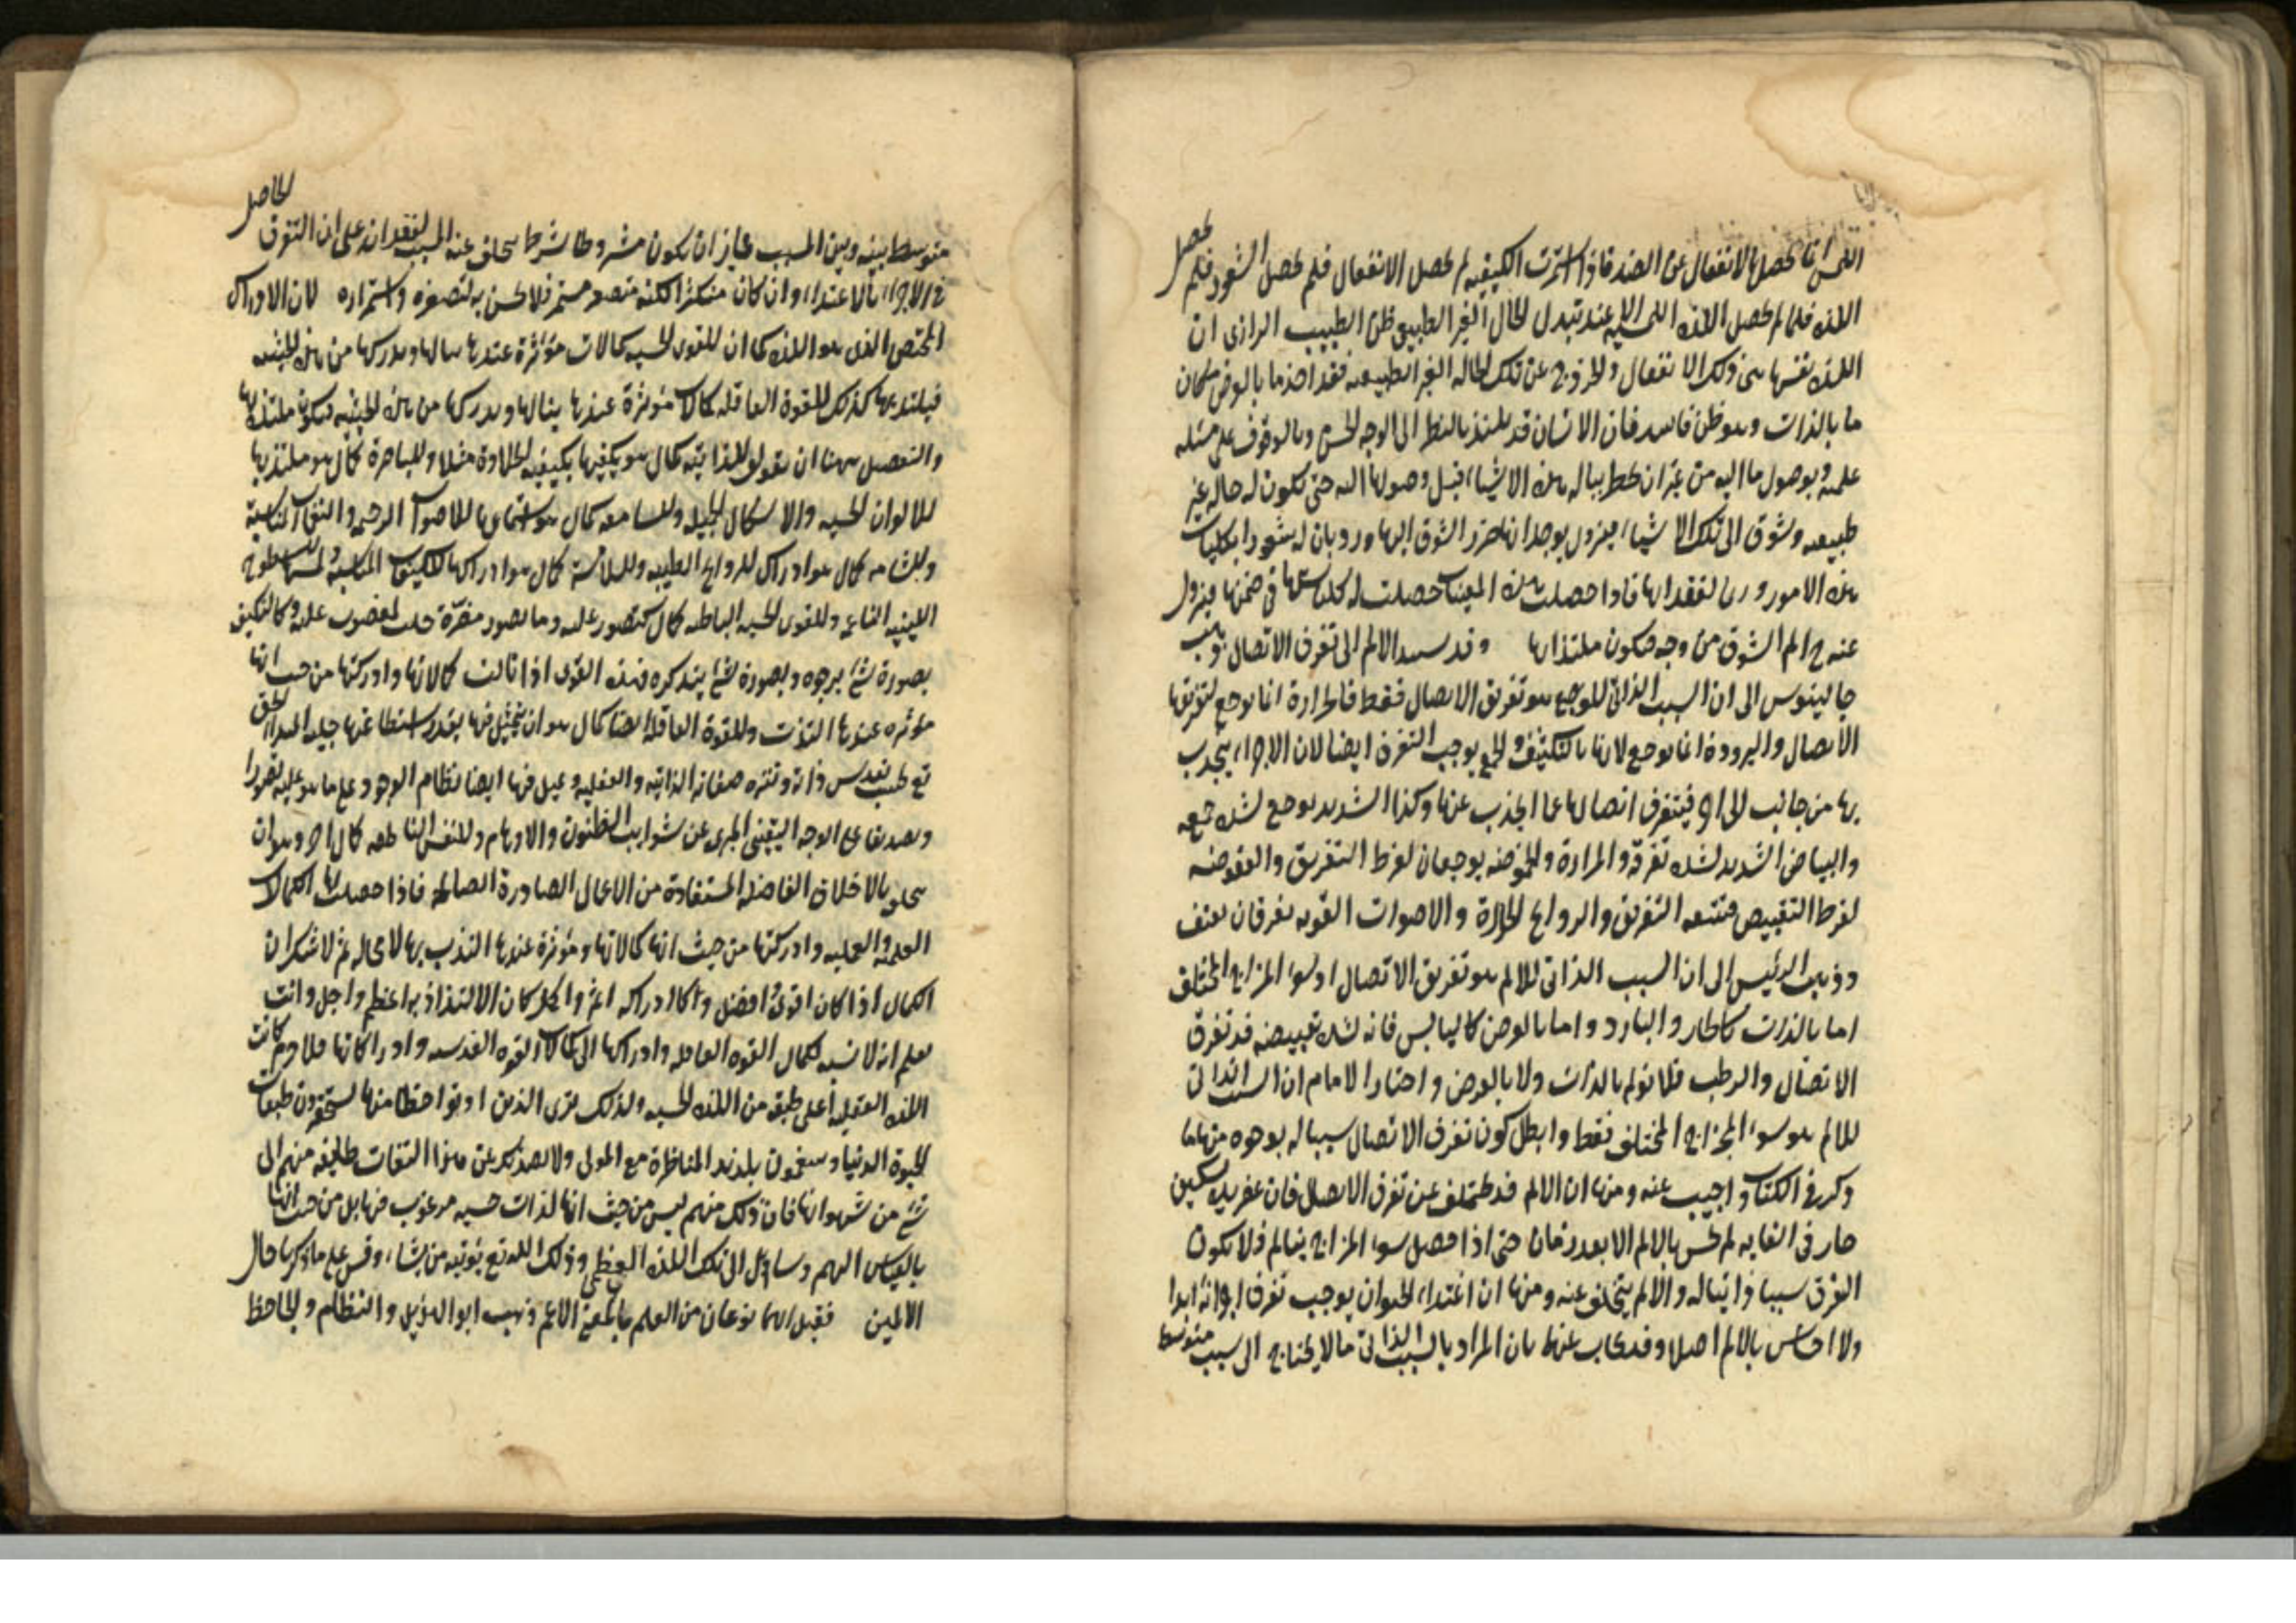 اللمس انما يحصل بالانفعال عن الضد فاذا استمرت الكيفية لم يحصل الانفعال فلم يحصل الشعور فلم يحصل
اللذة فلما لم يحصل اللذة اللمسية الا عند تبدل الحال الغير الطبيعي ظن الطبيب الرازي ان
اللذة نفسها هي ذلك الانفعال والخروج عن تلك الحالة الغير الطبيعية فقد اخذ ما بالعرض مكان
ما بالذات وهو ظن فاسد فان الانسان قد يلتذ بالنظر الى الوجه الحسن وبالوقوف على مسئلة
علمية وبوصول مال اليه من غير ان يخطر بباله هذه الاشياء قبل وصولها اليه حتى تكون له حالة غير
طبيعية وشوق الى تلك الاشياء يزول بوجدانها ضرر الشوق اليها ورد بان له شعورا بكليات
هذه الامور لفقدانها فاذا حصلت هذه المعينات حصلت له كلياتها في ضمنها فيزول
عنه ح الم الشوق من وجه فيكون ملتذا بها وقد يسند الالم الى تفرق الاتصال ذهب
جالينوس الى ان السبب الذاتي للوجع هو تفريق الاتصال فقط فالحرارة انما توجع لتفريقها
الاتصال والبرودة انما توجع لانها بالتكثيف والجمع يوجب التفرق ايضا لان الاجزاء ينجذب
بها من جانب الى اخر فيتفرق اتصالها عما انجذب عنها وكذا الشديد يوجع لشدة جمعه
والبياض الشديد لشدة تفرقه والمرارة والحموضة يوجعان لفرط التفريق والعفوصة
لفرط التقبيض فيتبعه التفريق والروايح الحادة والاصوات القوية يفرقان بعنف
وذهب الرئيس الى ان السبب الذاتي للالم هو تفريق الاتصال او سوء المزاج المختلف
اما بالذات كالحار والبارد واما بالعرض كاليابس فانه لشدة تقبيضه قد تفرق
الاتصال والرطب فلا يولم بالذات ولا بالعرض واختار الامام ان السبب الذاتي
للالم هو سوء المزاج المختلف فقط وابطل كون تفرق الاتصال سببا له بوجوه منها ما
ذكر في الكتاب واجيب عنه ومنها ان الالم قد يتخلف عن تفرق الاتصال فان عقر يده بسكين
حار في الغاية لم يحس بالالم الا بعد زمان حتى اذا حصل سوء المزاج يتالم فلا يكون
التفرق سببا ذاتيا له والا لم يتخلف عنه ومنها ان اغتذاء الحيوان يوجب تفرق اجزائه ابدا
ولا احساس بالالم اصلا وقد يجاب عنها بان المراد بالسبب الذاتي ما لا يحتاج الى سبب متوسط
متوسط بينه وبين المسبب فجاز ان يكون مشروطا بشرط يتخلف عنه المسبب لفقدانه على ان التفرق الحاصل
في الاجزاء بالاغتذاء وان كان متكثرا لكنه متصغر مستمر فلا يحس به لتصغره واستمراره لان الادراك
المختص الذي هو اللذة كما ان للقوى الحسية كمالات مؤثرة عندها ينالها ويدركها من هذه الحيثية
فيلتذ بها كذلك للقوة العاقلة كمالات مؤثرة عندها ينالها ويدركها من هذه الحيثية فيكون ملتذة بها
والتفصيل ههنا ان نقول للذايقة كمال هو تكيفها بكيفية الحلاوة مثلا وللباصرة كمال هو ملتذ بها
للالوان الحسية والاشكال الجميلة وللسامعة كمال هو استماعها للاصوات الرخيمة والنغمات المتناسبة
وللشامة كمال هو ادراك للروايح الطيبة وللامسة كمال هو ادراكها للكيفيات المناسبة ولمسها السطوح
اللينة الناعمة وللقوى الحسية الباطنة كمال كتصور غلبة وما يصور مضرة حلت لمغضوب عليه وكالتكيف
بصورة شئ يرجوه وبصورة شئ يتذكره فهذه القوى اذا نالت كمالاتها وادركتها من حيث انها
مؤثرة عندها التذت وللقوة العاقلة ايضا كمال هو ان يتمثل فيها بقدر استطاعتها جلية المبدا الحق
تع بقدس ذاته وتنزه صفاته الذاتية والفعلية ويتمثل فيها ايضا نظام الوجود على ما هو عليه تصورا
وتصديقا على الوجه اليقيني المبرى عن شوايب الظنون والاوهام وللنفس الناطقة كمال اخر وهو ان
يتحلى بالاخلاق الفاضلة المستفادة من الاعمال الصادرة الصالحة فاذا حصلت لها الكمالات
العلمية والعملية وادركتها من حيث انها كمالاتها ومؤثرة عندها التذت بها لا محالة ثم لا شك ان
الكمال اذا كان اقوى وافضل وكان ادراكه اتم واكمل كان الالتذاذ به اعظم واجل وانت
تعلم انه لا نسبة لكمال القوة العاقلة وادراكها الى كمالات القوة وادراكاتها فلا جرم كانت
اللذة العقلية اعلى طبقة من اللذة الحسية ولذلك ترى الذين اوتوا حظا منها يستحقرون طيبات
الحيوة الدنيا ويتنعمون بلذيذ المناظرة مع المولى ولا يصدر عن هذا التفات طايفة منهم الى
شئ من شهواتها فان ذلك منهم ليس من حيث انها لذات حسية مرغوب فيها بل من حيث انها
بالقياس اليهم وسايل الى تلك اللذة العظمى وذلك اللذة تع يؤتيه من يشاء وقس على ما ذكرنا حال
الالمين فقيل انهما نوعان من العلم بالمعنى الاعم وذهب ابو الهذيل والنظام والجاحظ